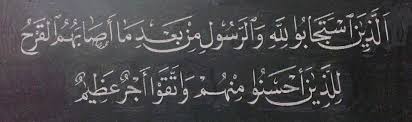 الَّذِينَ اسْتَجَابُوا لِلَّهِ وَالرَّسُولِ مِنْ بَعْدِ مَا أَصَابَهُمُ الْقَرْحُ
لِلَّذِينَ أَحْسَنُوا مِنْهُمْ وَاتَّقَوْا أَجْرٌ عَظِيمٌ